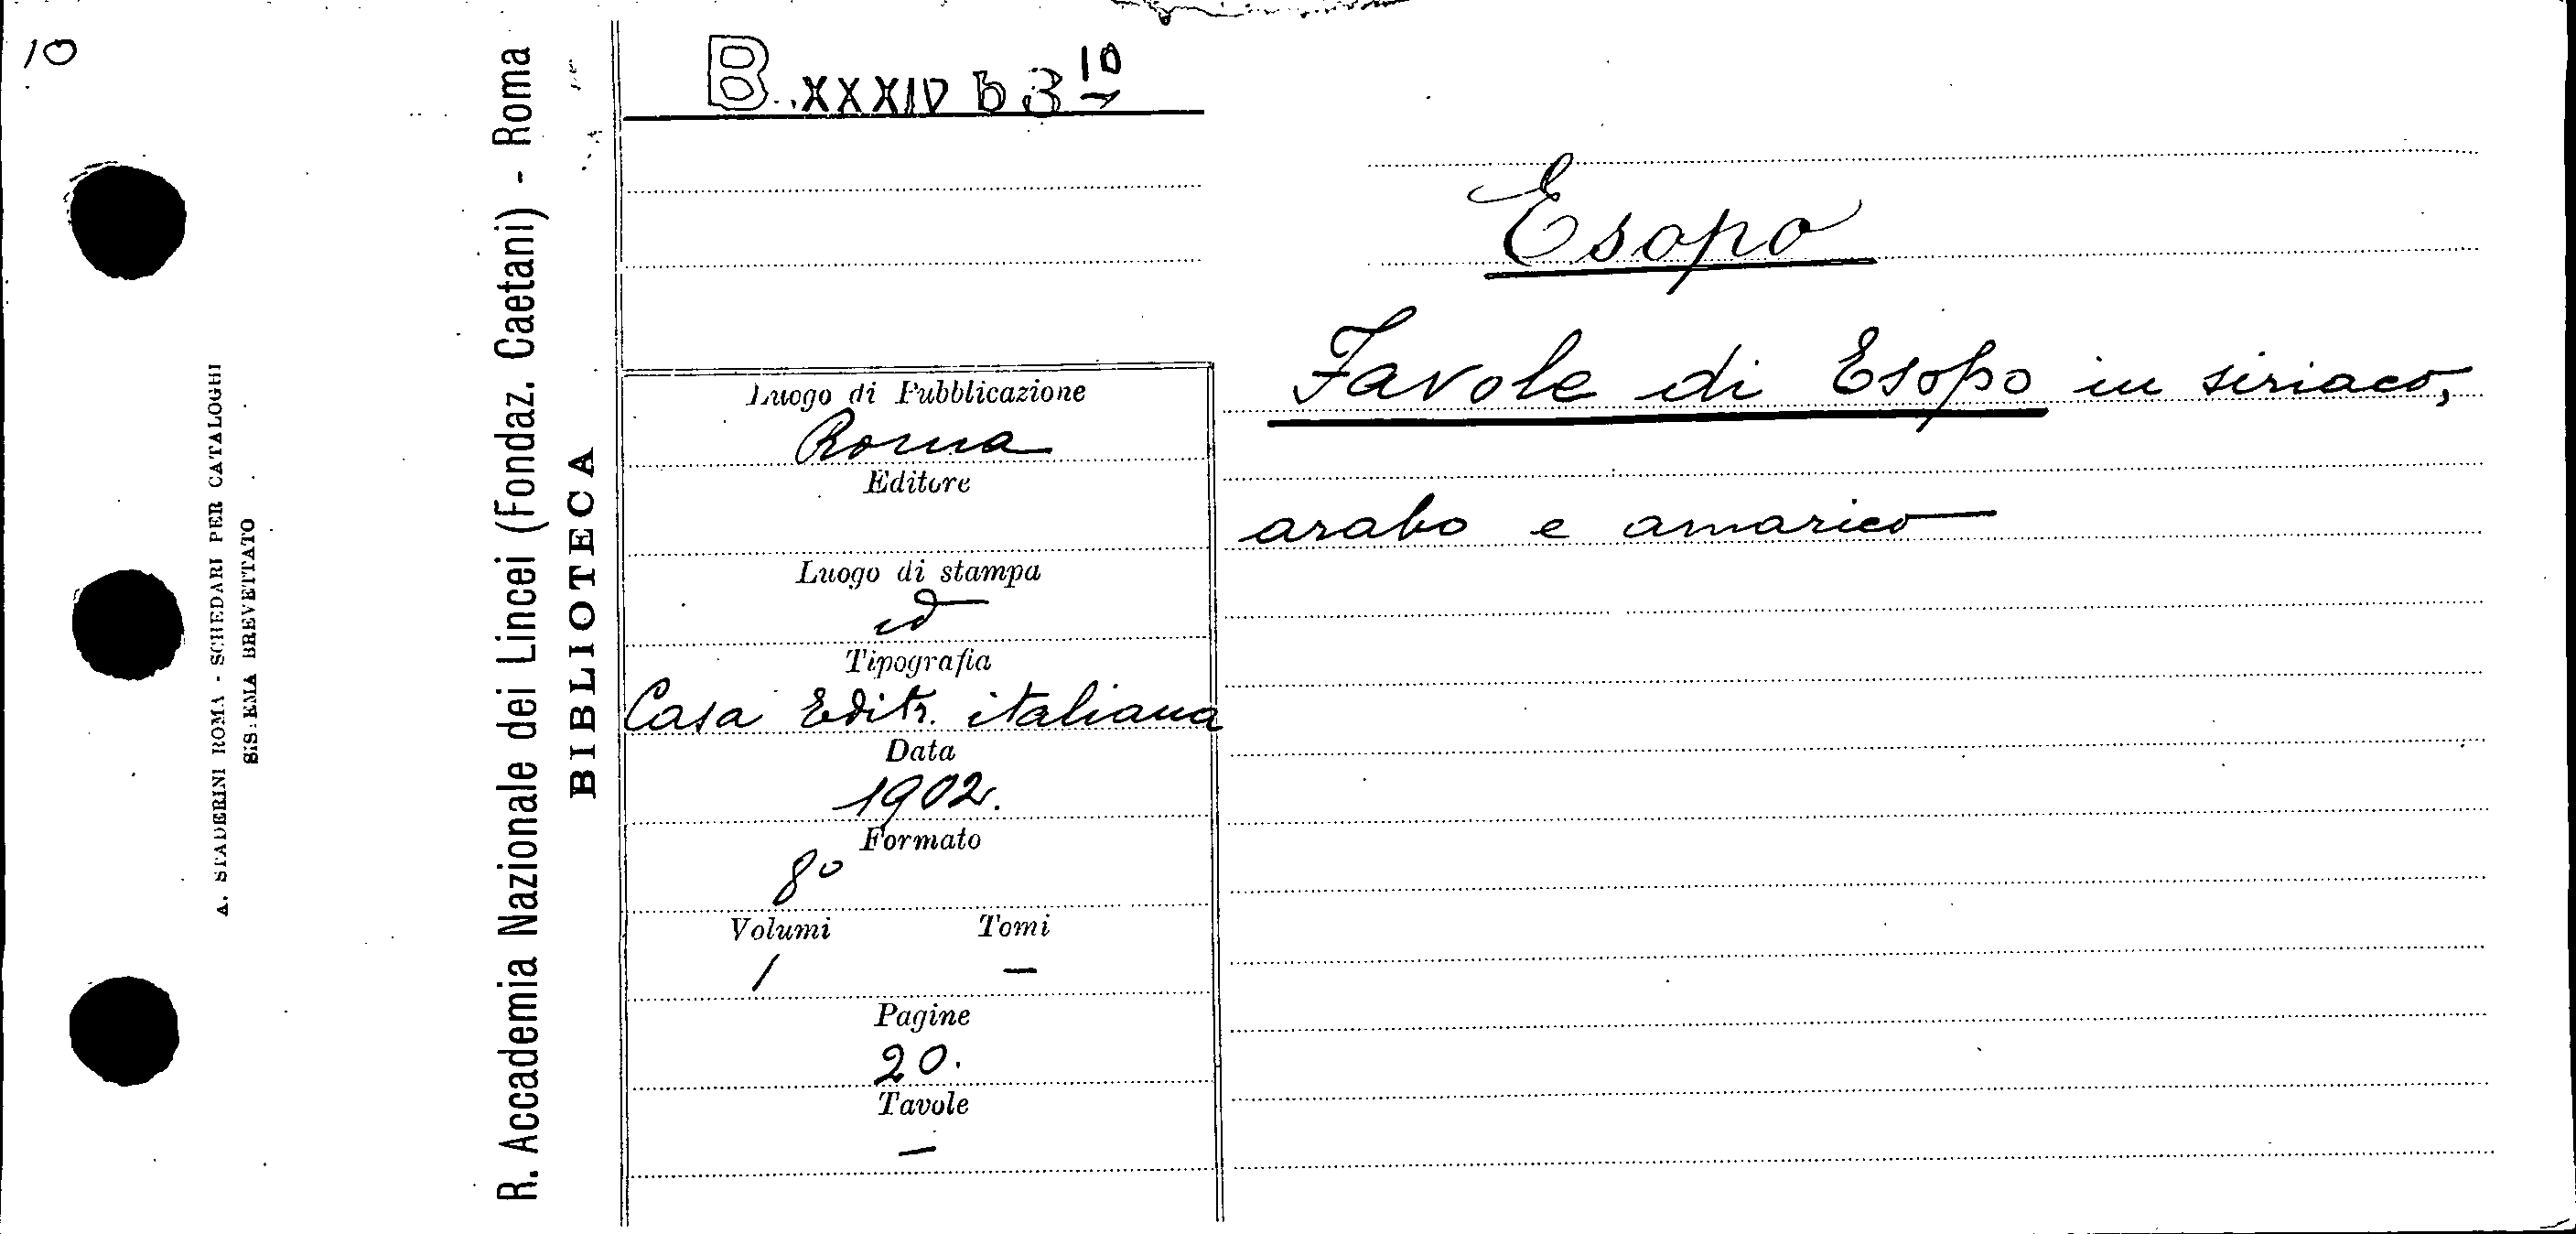 10
A. STADERINI ROMA - SCHEDARI PER CATALOGHI
SISTEMA BREVETTATO
R. Accademia Nazionale dei Lincei (Fondaz. Caetani) - Roma
BIBLIOTECA
B. XXXIV b 3 10
Esopo
Favole di Esopo in siriaco,
arabo e amarico
Luogo di Pubblicazione
Roma
Editore
Luogo di stampa
id
Tipografia
Casa Editr. italiana
Data
1902.
Formato
8°
Volumi Tomi
1 —
Pagine
20.
Tavole
—